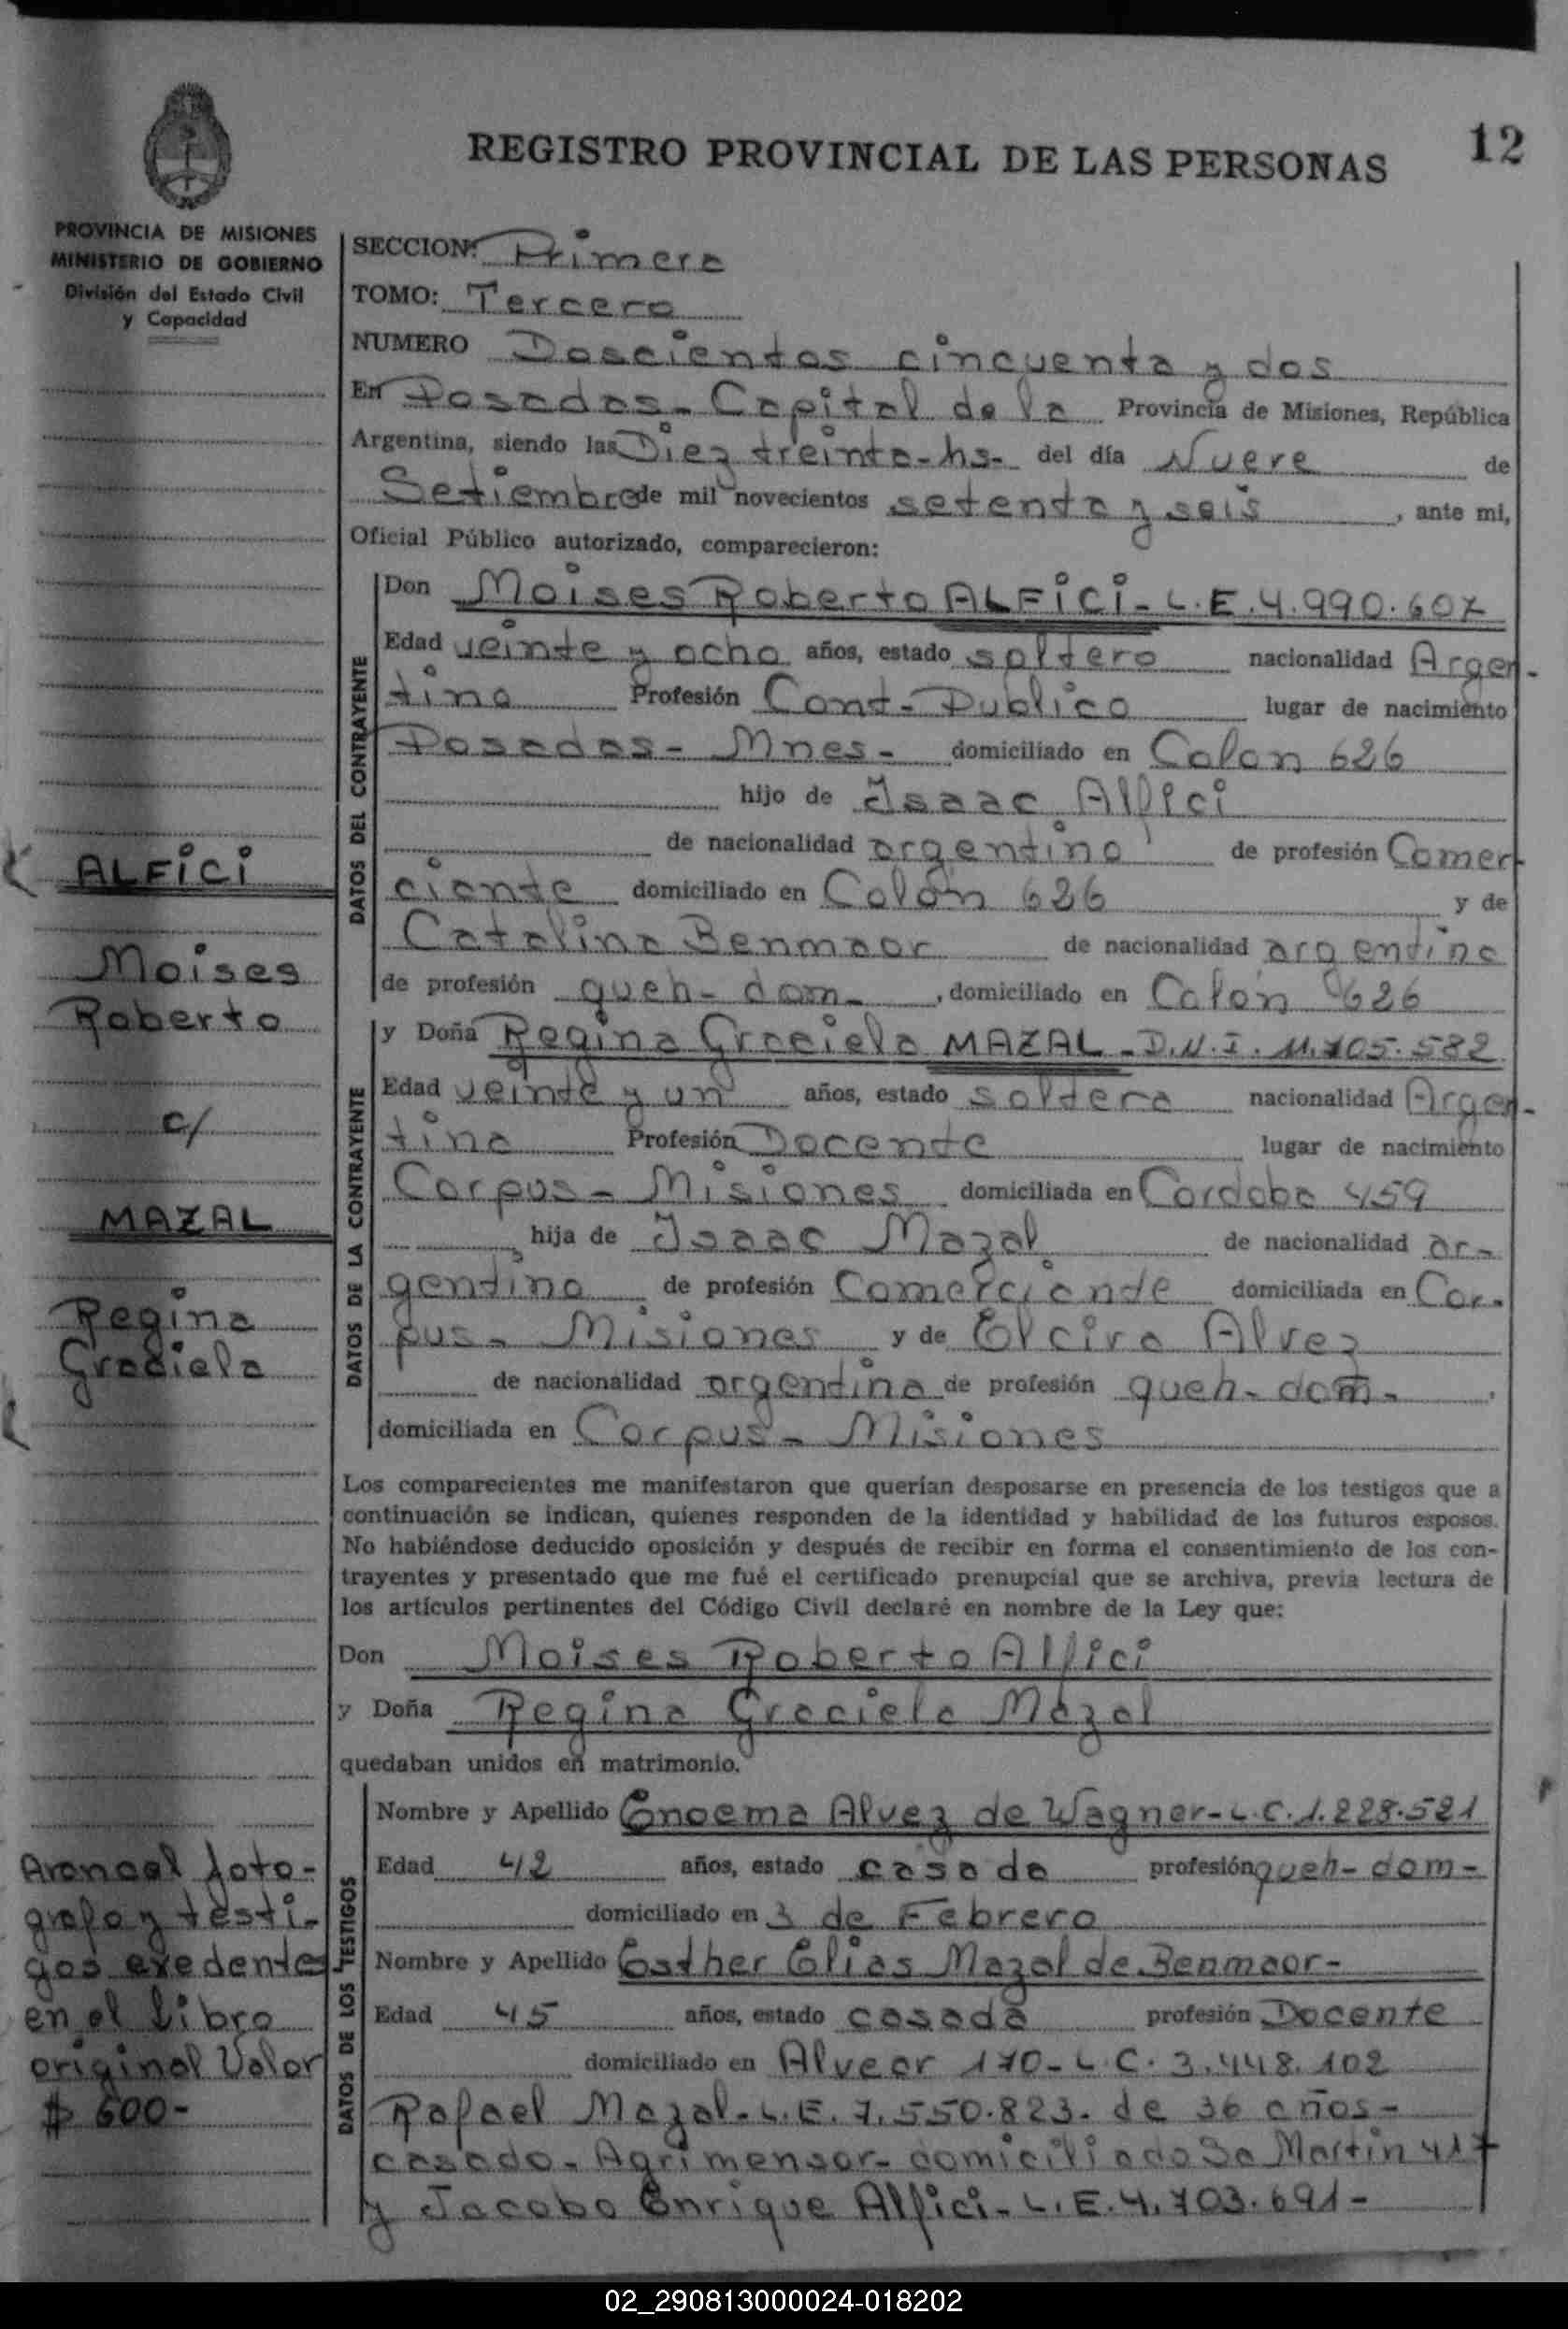 REGISTRO PROVINCIAL DE LAS PERSONAS 12
PROVINCIA DE MISIONES
MINISTERIO DE GOBIERNO
División del Estado Civil
y Capacidad
ALFICI
Moises
Roberto
c/
MAZAL
Regina
Graciela
Arancel foto-
grafo y testi-
gos exedentes
en el libro
original Valor
$ 600-
SECCION: Primera
TOMO: Tercero
NUMERO Doscientos cincuenta y dos
En Posadas - Capital de la Provincia de Misiones, República
Argentina, siendo las Diez treinta - hs - del día Nueve de
Setiembre de mil novecientos setenta y seis, ante mi,
Oficial Público autorizado, comparecieron:
DATOS DEL CONTRAYENTE
Don Moises Roberto ALFICI - L.E. 4.990.607
Edad veinte y ocho años, estado soltero nacionalidad Argen-
tina Profesión Cont - Publico lugar de nacimiento
Posadas - Mnes - domiciliado en Colon 626
hijo de Isaac Alfici
de nacionalidad argentino de profesión Comer-
ciante domiciliado en Colón 626 y de
Catalina Benmaor de nacionalidad argentina
de profesión queh - dom -, domiciliado en Colón 626
DATOS DE LA CONTRAYENTE
y Doña Regina Graciela MAZAL - D.N.I. 11.705.582
Edad veinte y un años, estado soltera nacionalidad Argen-
tina Profesión Docente lugar de nacimiento
Corpus - Misiones domiciliada en Cordoba 459
hija de Isaac Mazal de nacionalidad ar-
gentino de profesión Comerciante domiciliada en Cor-
pus - Misiones y de Elcira Alvez
de nacionalidad argentina de profesión queh - dom -,
domiciliada en Corpus - Misiones
Los comparecientes me manifestaron que querían desposarse en presencia de los testigos que a
continuación se indican, quienes responden de la identidad y habilidad de los futuros esposos.
No habiéndose deducido oposición y después de recibir en forma el consentimiento de los con-
trayentes y presentado que me fué el certificado prenupcial que se archiva, previa lectura de
los artículos pertinentes del Código Civil declaré en nombre de la Ley que:
Don Moises Roberto Alfici
y Doña Regina Graciela Mazal
quedaban unidos en matrimonio.
DATOS DE LOS TESTIGOS
Nombre y Apellido Enoema Alvez de Wagner - L.C. 1.228.521
Edad 42 años, estado casada profesión queh - dom -
domiciliado en 3 de Febrero
Nombre y Apellido Esther Elias Mazal de Benmaor -
Edad 45 años, estado casada profesión Docente
domiciliado en Alvear 170 - L.C. 3.448.102
Rafael Mazal - L.E. 7.550.823 - de 36 años -
casado - Agrimensor - domiciliado Sa Martin 417
y Jacobo Enrique Alfici - L.E. 4.703.691 -
02_290813000024-018202